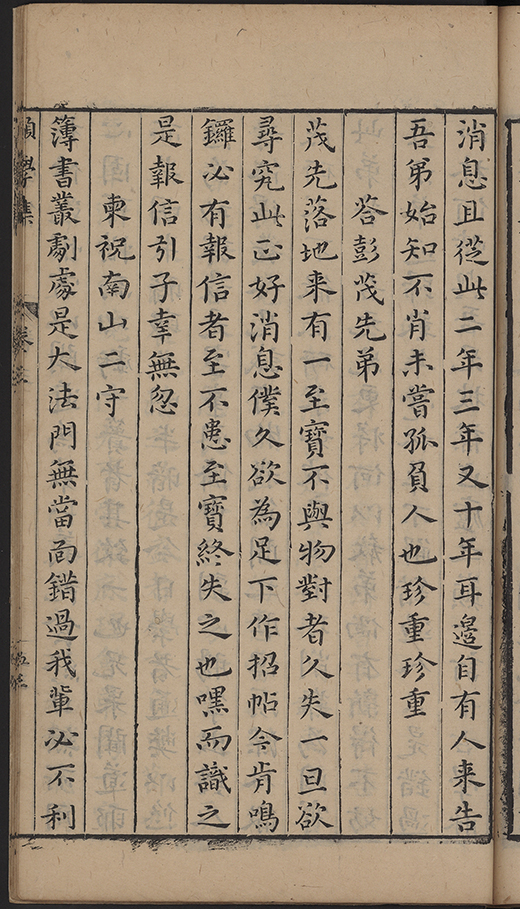 消息且從此二年三年又十年耳邊自有人来告
吾弟始知不肖未嘗孤負人也珍重珍重
荅彭茂先弟
茂先落地来有一至寶不與物對者久失一旦欲
尋究此正好消息僕久欲為足下作招帖今肯鳴
鑼必有報信者至不患至寶終失之也嘿而識之
是報信引子幸無忽
柬祝南山二守
簿書叢劇處是大法門無當面錯過我輩必不利
學集